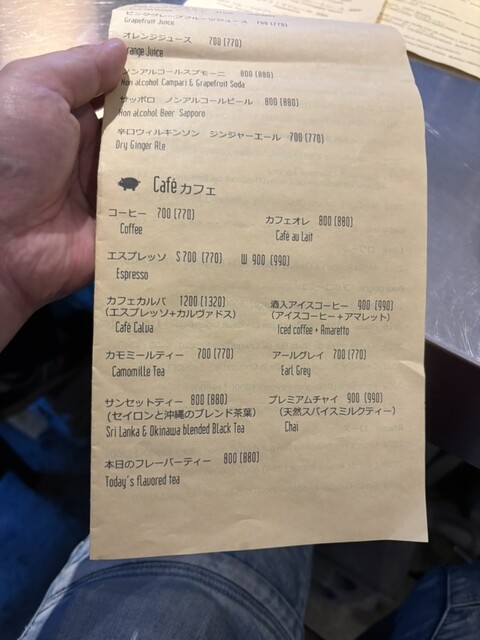 ピンクグレープフルーツジュース 700 (770)
Grapefruit Juice
オレンジジュース 700 (770)
range Juice
ノンアルコールスプモーニ 800 (880)
Non alcohol Campari & Grapefruit Soda
サッポロ ノンアルコールビール 800 (880)
Non alcohol Beer Sapporo
辛口ウィルキンソン ジンジャーエール 700 (770)
Dry Ginger Ale
Café カフェ
コーヒー 700 (770)
Coffee
カフェオレ 800 (880)
Café au Lait
エスプレッソ S 700 (770) W 900 (990)
Espresso
カフェカルバ 1200 (1320)
(エスプレッソ+カルヴァドス)
Café Calua
酒入アイスコーヒー 900 (990)
(アイスコーヒー+アマレット)
Iced coffee + Amaretto
カモミールティー 700 (770)
Camomille Tea
アールグレイ 700 (770)
Earl Grey
サンセットティー 800 (880)
(セイロンと沖縄のブレンド茶葉)
Sri Lanka & Okinawa blended Black Tea
プレミアムチャイ 900 (990)
(天然スパイスミルクティー)
Chai
本日のフレーバーティー 800 (880)
Today's flavored tea